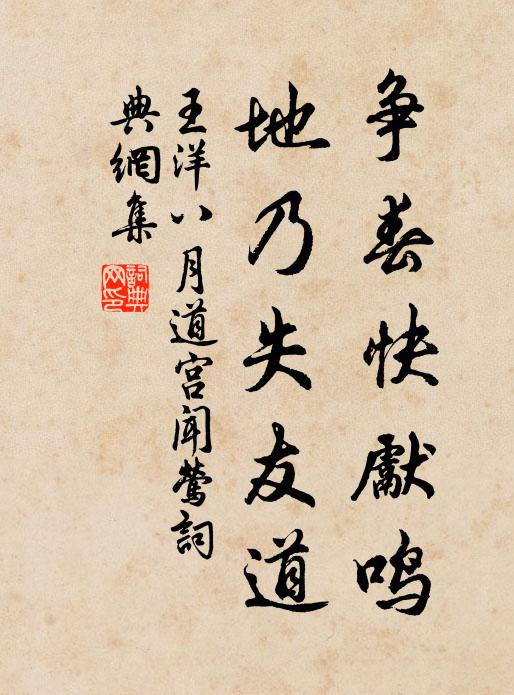 争春快獻鸣
地乃失友道
王洋八月道宫闻莺詞
典網集
詞典网印